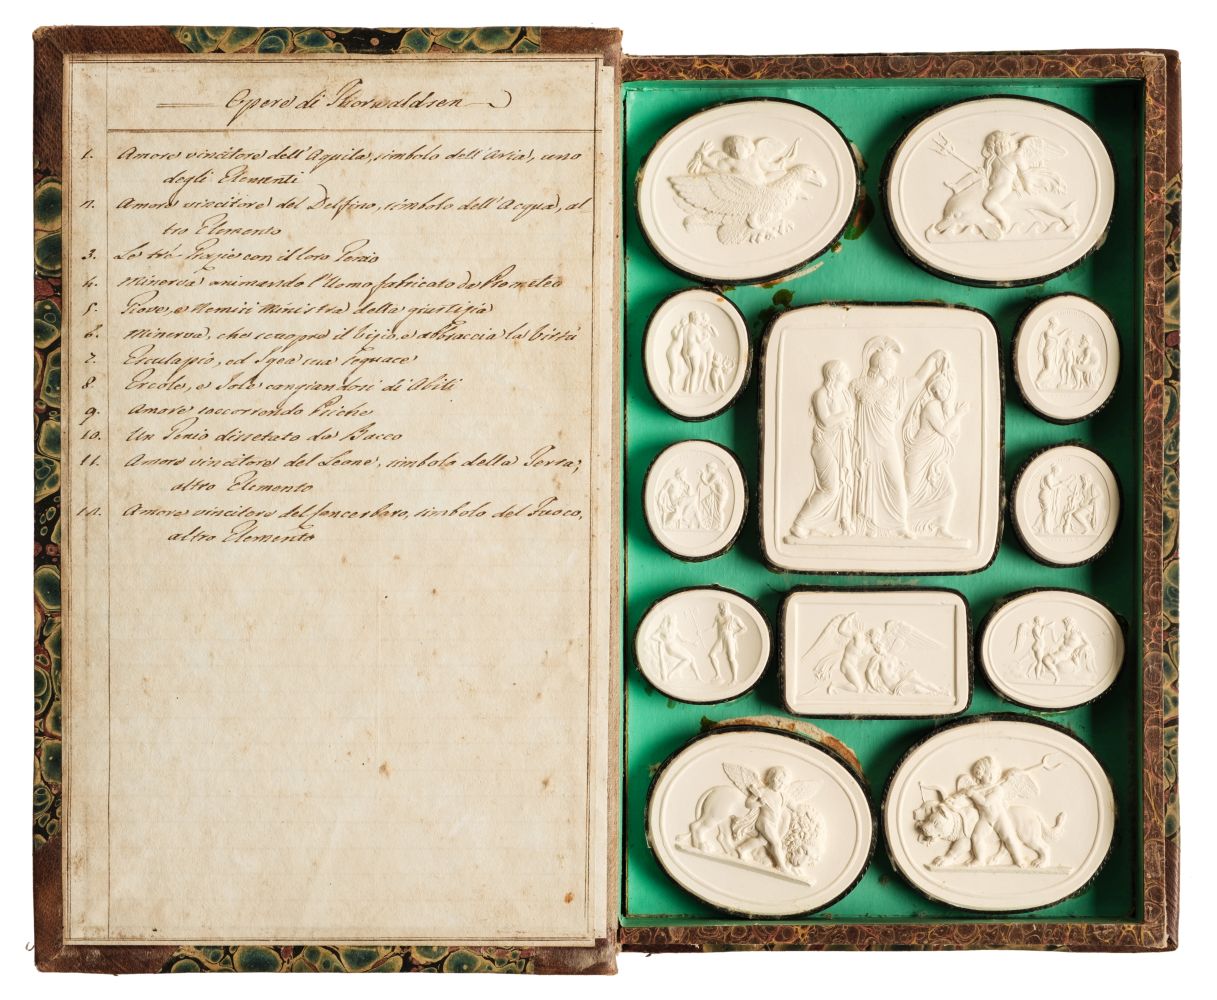 Opere di Thorwaldsen
1. Amore vincitore dell'Aquila, simbolo dell'Aria, uno
degli Elementi
2. Amore vincitore del Delfino, simbolo dell'Acqua, al
tro Elemento
3. Le tré Grazie con il loro Genio
4. Minerva animando l'Uomo fabricato da Prometeo
5. Giove, e Nemisi Ministra della giustizia
6. Minerva, che scuopre il vizio, e abbraccia la virtù
7. Esculapio, ed Igea sua seguace
8 Ercole, e Jole cangiandosi di Abiti
9. Amore soccorrendo Psiche
10. Un Genio dissetato da Bacco
11. Amore vincitore del Leone, simbolo della Terra,
altro Elemento
12. Amore vincitore del Cancerbaro, simbolo del Fuoco,
altro Elemento